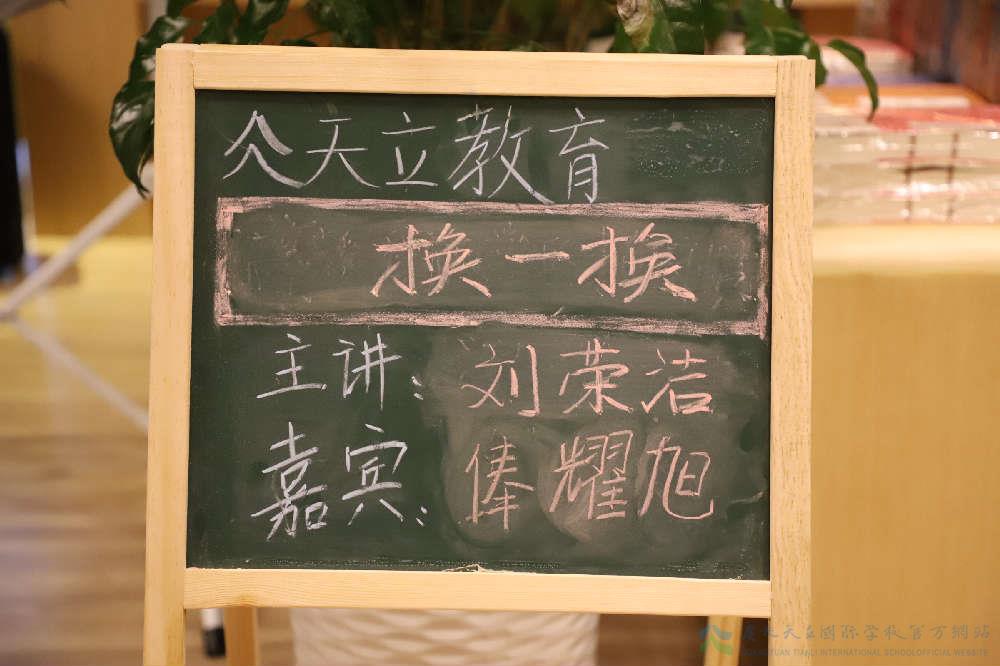 天立教育
换一换
主讲:刘荣洁
嘉宾:俸耀旭
天立國際学校官方網站
TIANLI INTERNATIONAL SCHOOL OFFICIAL WEBSITE